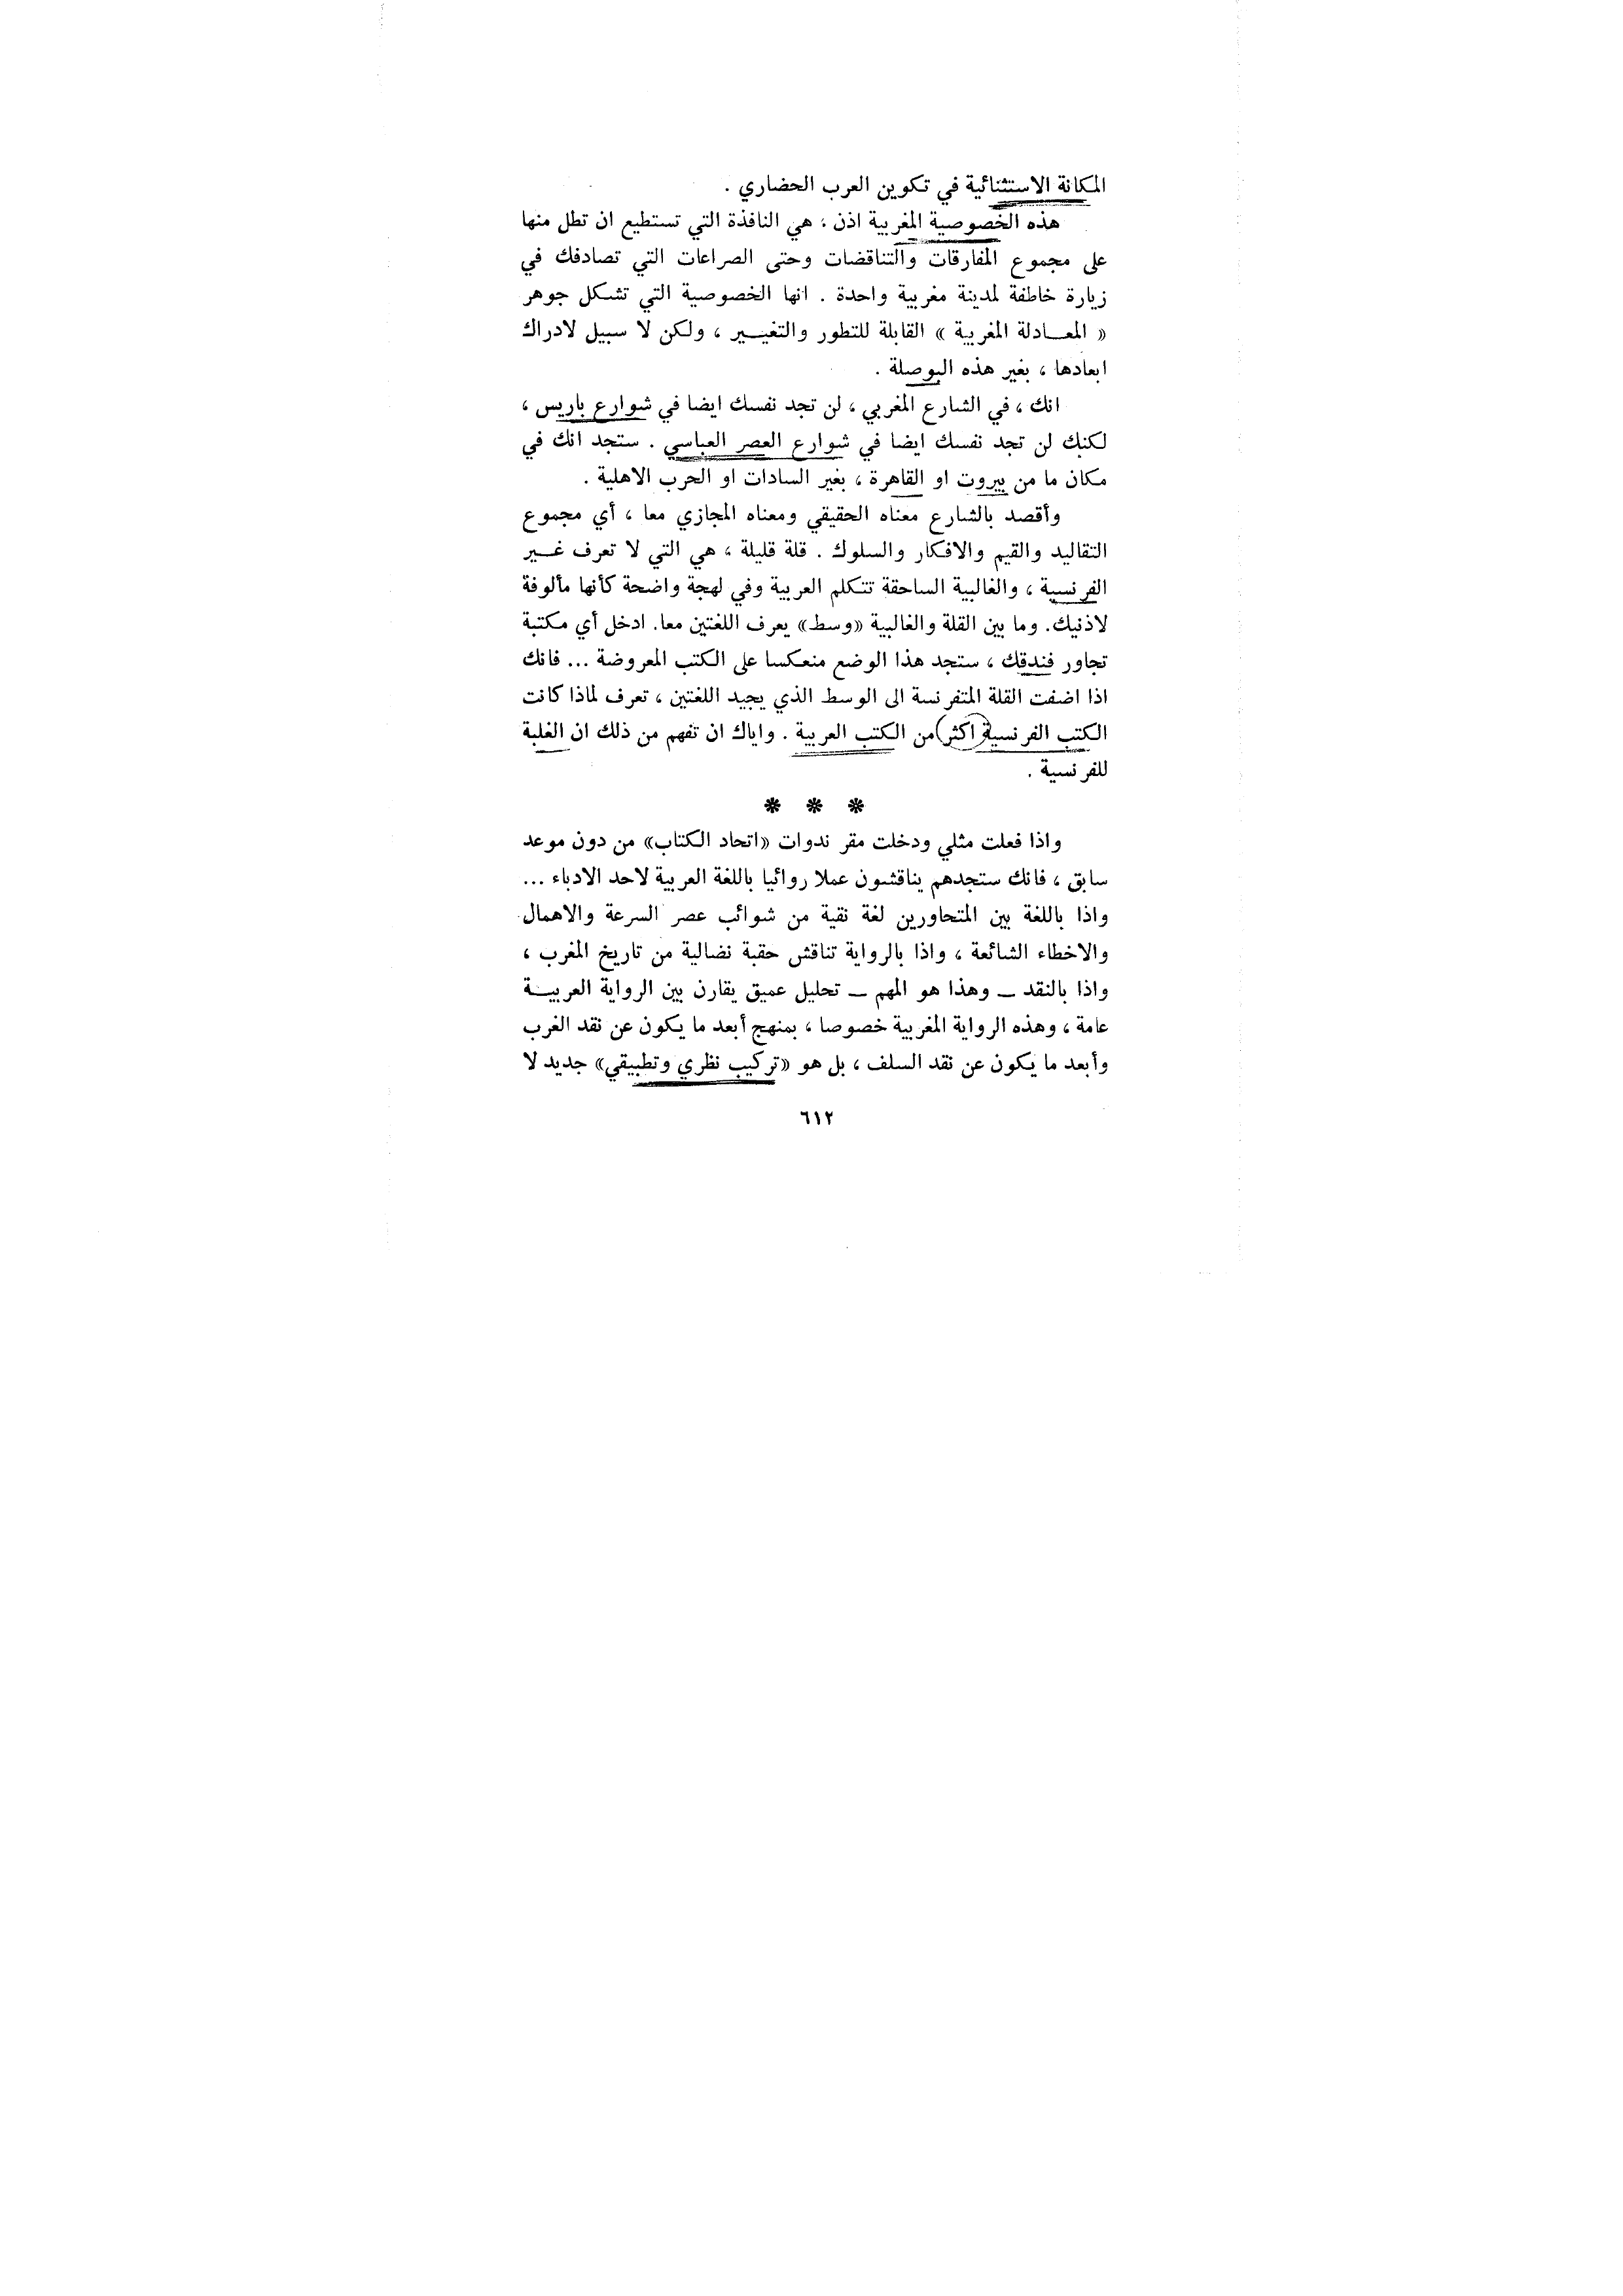 المكانة الاستثنائية في تكوين العرب الحضاري .
هذه الخصوصية المغربية اذن ، هي النافذة التي تستطيع ان تطل منها
على مجموع المفارقات والتناقضات وحتى الصراعات التي تصادفك في
زيارة خاطفة لمدينة مغربية واحدة . انها الخصوصية التي تشكل جوهر
« المعـــادلة المغربية » القابلة للتطور والتغيـــير ، ولكن لا سبيل لادراك
ابعادها ، بغير هذه البوصلة .
انك ، في الشارع المغربي ، لن تجد نفسك ايضا في شوارع باريس ،
لكنك لن تجد نفسك ايضا في شوارع العصر العباسي . ستجد انك في
مكان ما من بيروت او القاهرة ، بغير السادات او الحرب الاهلية .
وأقصد بالشارع معناه الحقيقي ومعناه المجازي معا ، أي مجموع
التقاليد والقيم والافكار والسلوك . قلة قليلة ، هي التي لا تعرف غـــير
الفرنسية ، والغالبية الساحقة تتكلم العربية وفي لهجة واضحة كأنها مألوفة
لاذنيك. وما بين القلة والغالبية «وسط» يعرف اللغتين معا. ادخل أي مكتبة
تجاور فندقك ، ستجد هذا الوضع منعكسا على الكتب المعروضة ... فانك
اذا اضفت القلة المتفرنسة الى الوسط الذي يجيد اللغتين ، تعرف لماذا كانت
الكتب الفرنسية (اكثر) من الكتب العربية . واياك ان تفهم من ذلك ان الغلبة
للفرنسية .
* * *
واذا فعلت مثلي ودخلت مقر ندوات «اتحاد الكتاب» من دون موعد
سابق ، فانك ستجدهم يناقشون عملا روائيا باللغة العربية لاحد الادباء ...
واذا باللغة بين المتحاورين لغة نقية من شوائب عصر السرعة والاهمال
والاخطاء الشائعة ، واذا بالرواية تناقش حقبة نضالية من تاريخ المغرب ،
واذا بالنقد ــ وهذا هو المهم ــ تحليل عميق يقارن بين الرواية العربيـــة
عامة ، وهذه الرواية المغربية خصوصا ، بمنهج أبعد ما يكون عن نقد الغرب
وأبعد ما يكون عن نقد السلف ، بل هو «تركيب نظري وتطبيقي» جديد لا
٦١٢